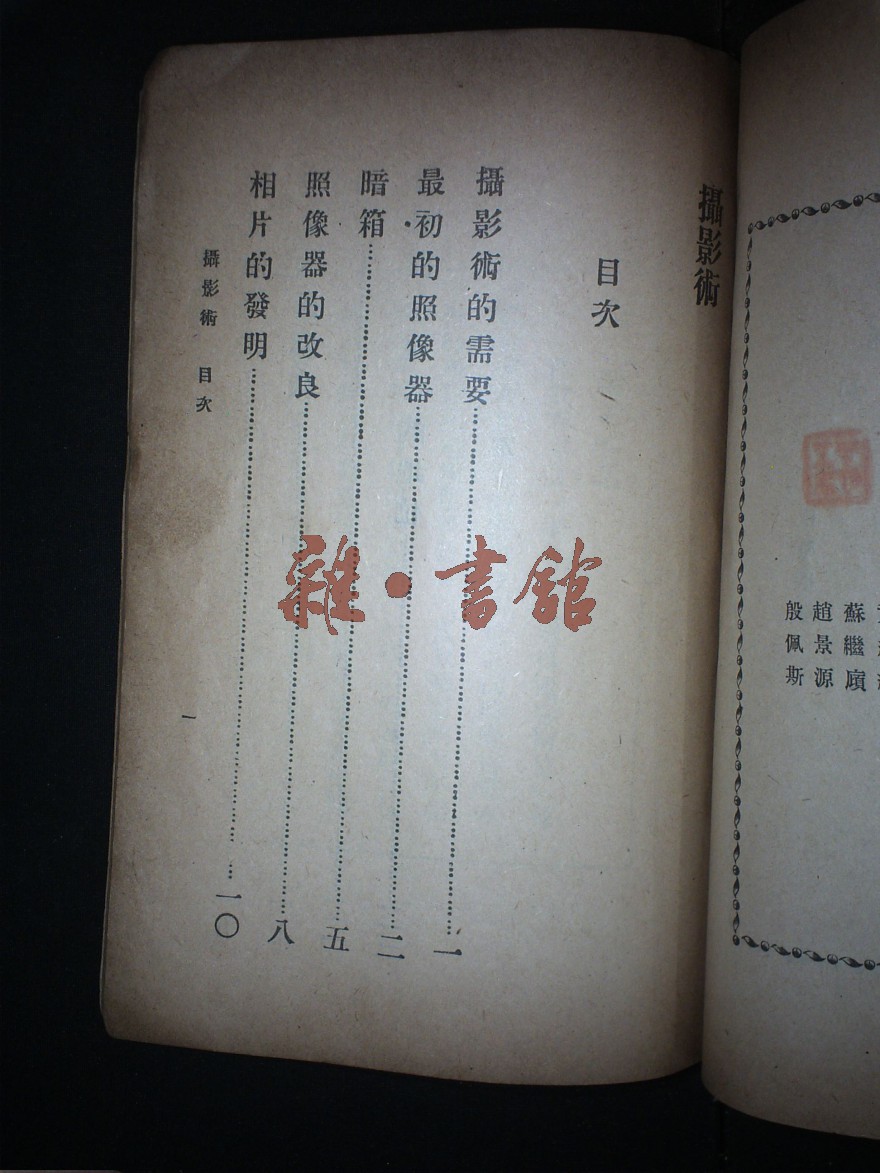 蘇繼廎
趙景源
殷佩斯
攝影術
目次
攝影術的需要……一
最初的照像器……二
暗箱……五
照像器的改良……八
相片的發明……一〇
攝影術 目次
一
雜·書館